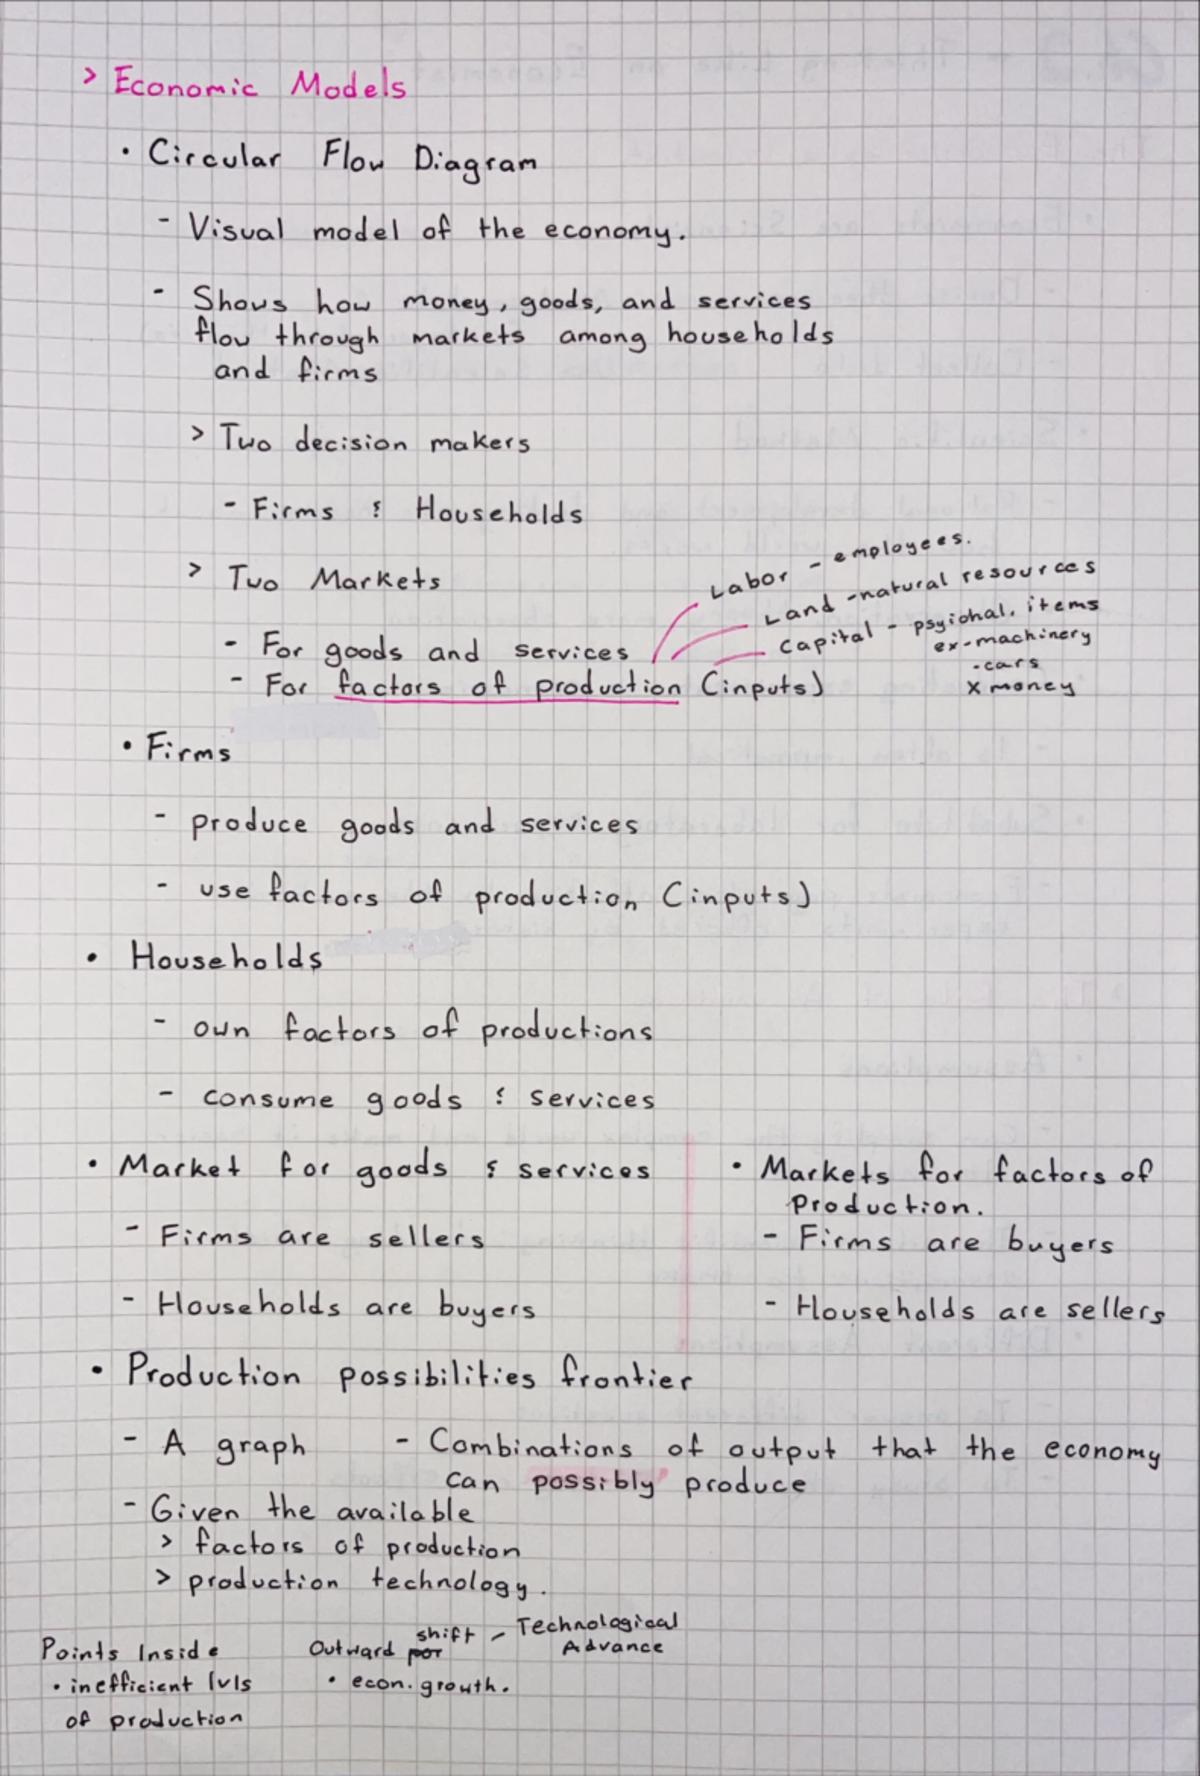 > Economic Models
• Circular Flow Diagram
- Visual model of the economy.
- Shows how money, goods, and services
flow through markets among households
and firms
> Two decision makers
- Firms & Households
> Two Markets
- For goods and services
- For factors of production (inputs)
Labor - employees.
Land - natural resources
Capital - psyichal. items
ex-machinery
-cars
x money
• Firms
- produce goods and services
- use factors of production (inputs)
• Households
- own factors of productions
- consume goods & services
• Market for goods & services
- Firms are sellers
- Households are buyers
• Markets for factors of
Production.
- Firms are buyers
- Households are sellers
• Production possibilities frontier
- A graph
- Combinations of output that the economy
can possibly produce
- Given the available
> factors of production
> production technology.
Points Inside
• inefficient lvls
of production
Outward shift - Technological
Advance
• econ. growth.